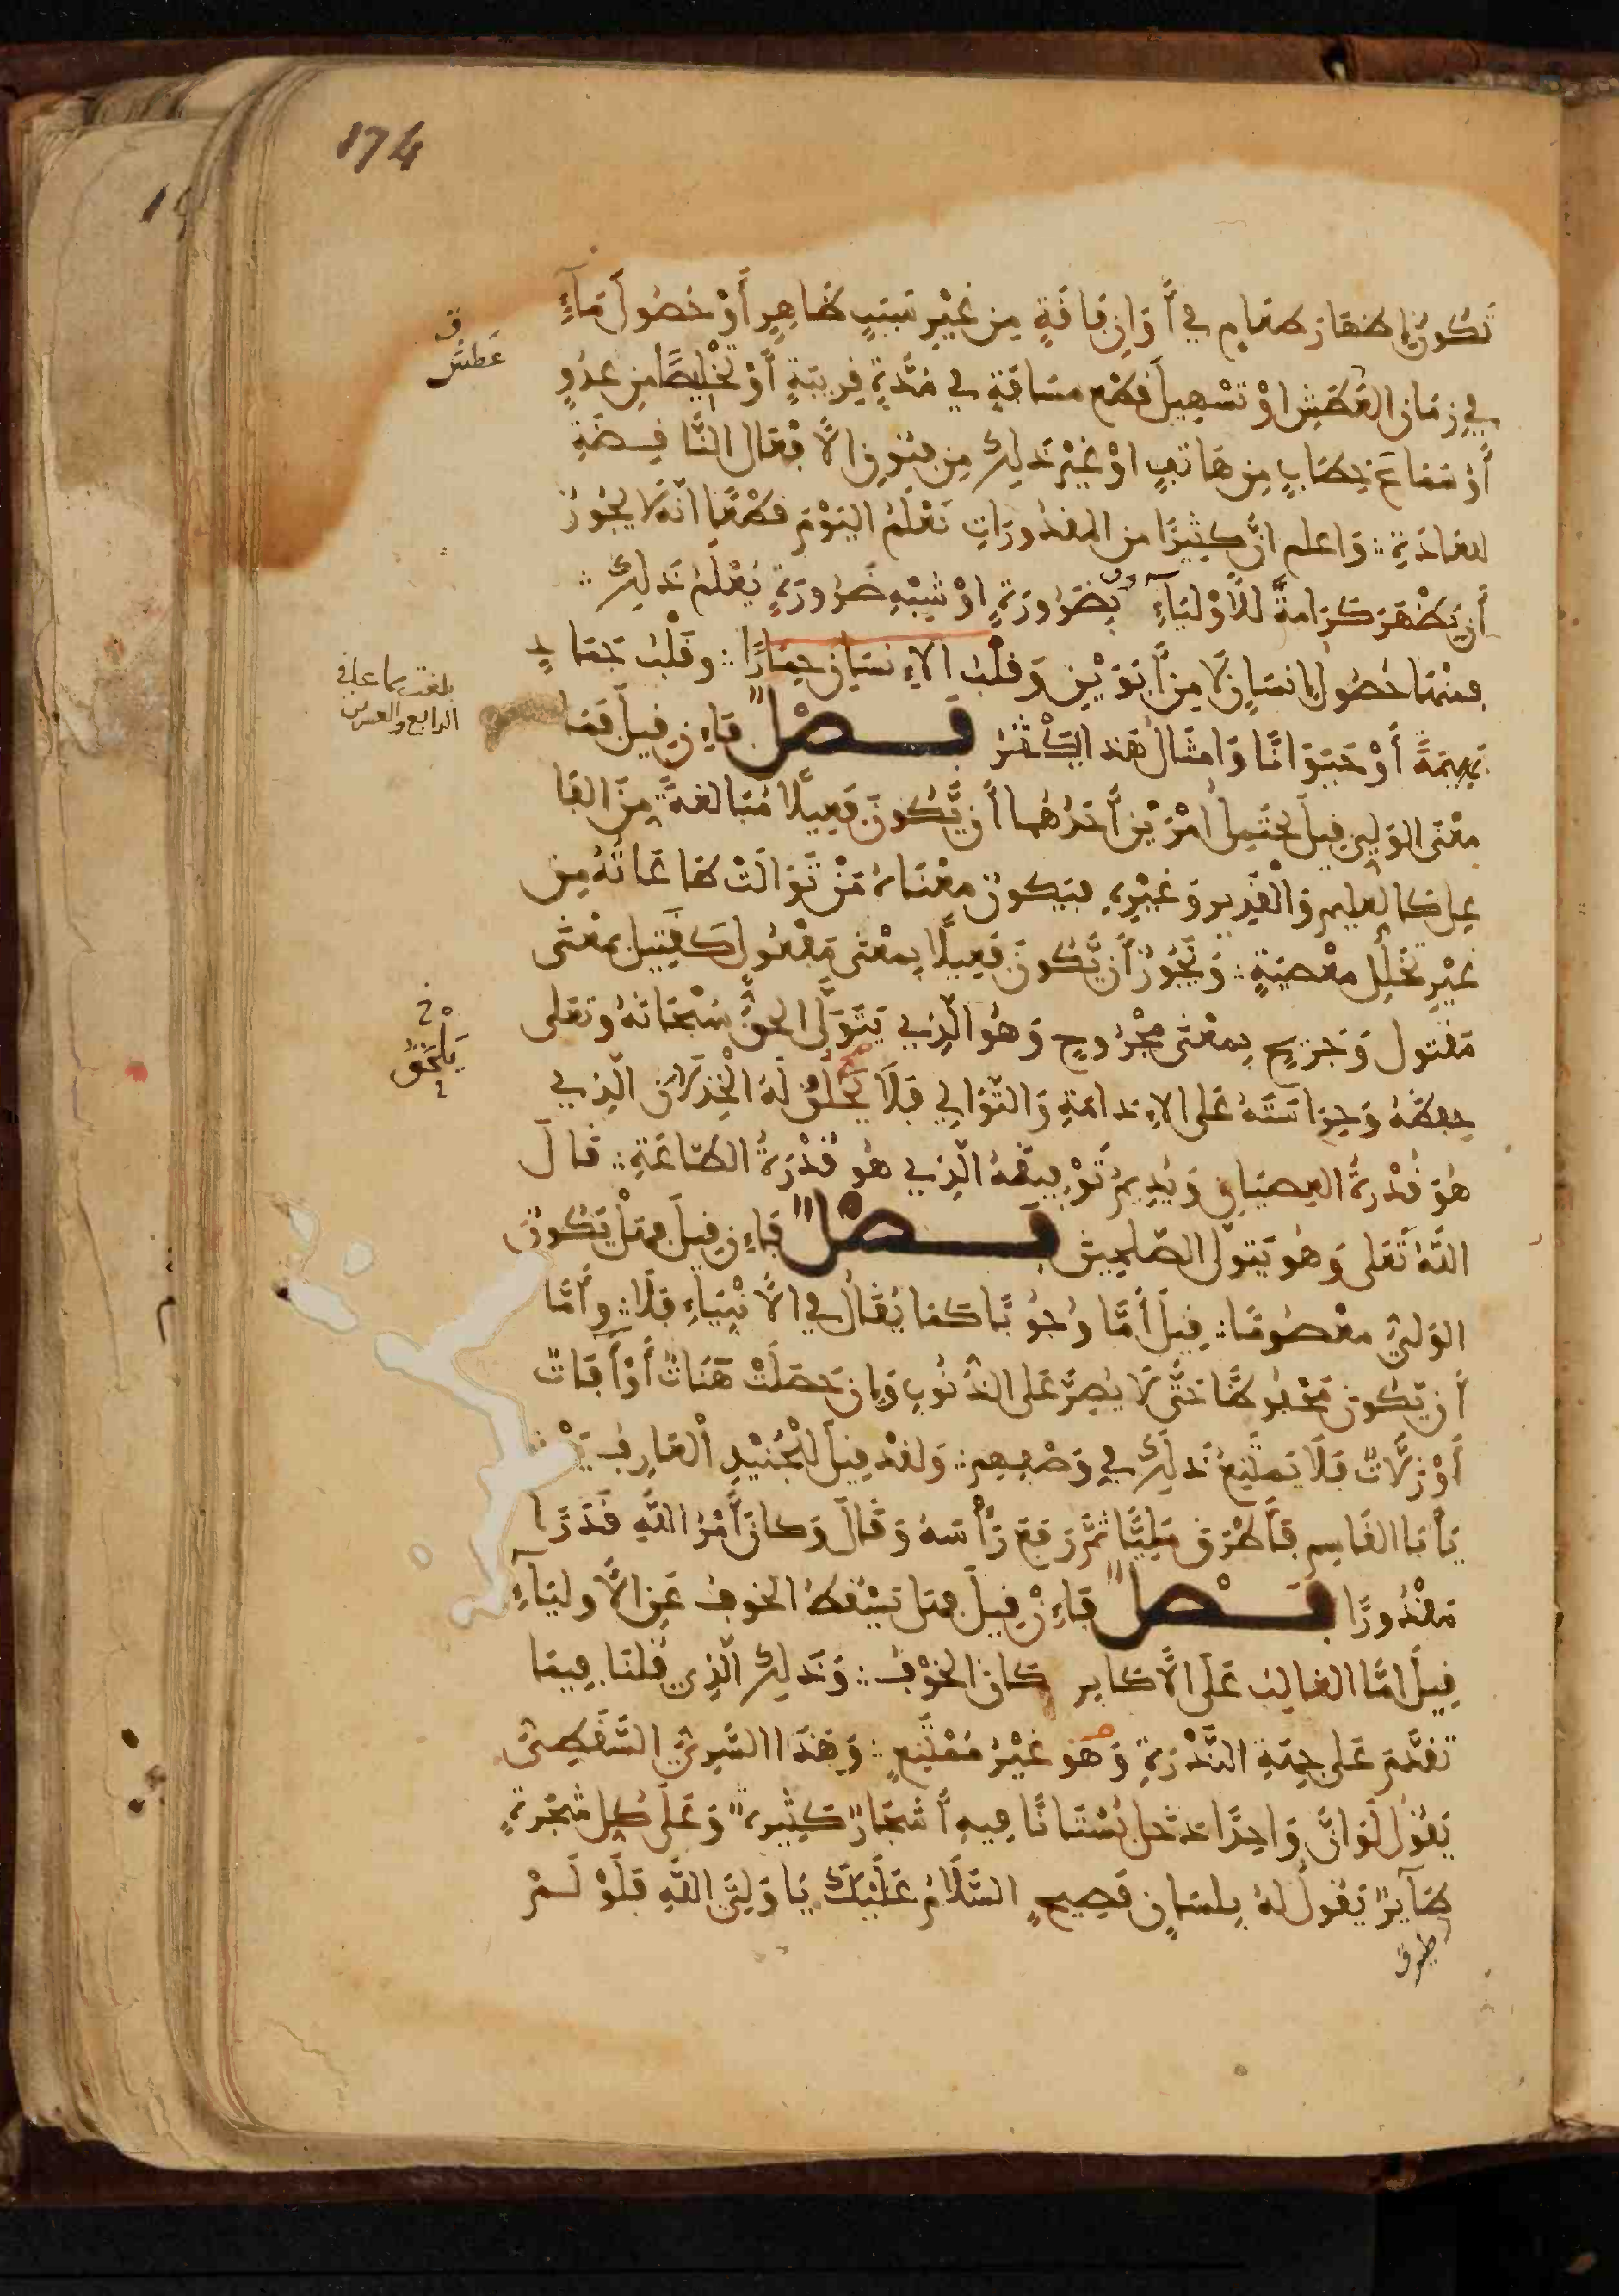 174
تكون إظهار طعام في أوان فاقة من غير سبب ظاهر أو حصول ماء
في زمان العطش أو تسهيل قطع مسافة في مدة قريبة أو تخليصا من عدو
أو سماع خطاب من هاتف أو غير ذلك من فنون الأفعال الناقضة
للعادة ∴ واعلم أن كثيرا من المقدورات نعلم اليوم قطعا أنه لا يجوز
أن يظهر كرامة للأولياء بضرورة أو شبه ضرورة يعلم ذلك ∴
فمنها حصول إنسان لا من أبوين وقلب الإنسان حمارا ∴ وقلب جماد
بهيمة أو حيوانا وأمثال هذا يكثر فصل فإن قيل فما
معنى الولي قيل يحتمل أمرين أحدهما أن يكون فعيلا مبالغة من الفا
عل كالعليم والقدير وغيره فيكون معناه من توالت طاعاته من
غير تخلل معصية ∴ ويجوز أن يكون فعيلا بمعنى مفعول كقتيل بمعنى
مقتول وجريح بمعنى مجروح وهو الذي يتولى الحق سبحانه وتعلى
حفظه وحراسته على الإدامة والتوالي فلا يخلق له الخذلان الذي
هو قدرة العصيان ويديم توفيقه الذي هو قدرة الطاعة ∴ قال
الله تعلى وهو يتولى الصلحين فصل فإن قيل فهل يكون
الولي معصوما ∴ قيل أما وجوبا كما يقال في الأنبياء فلا ∴ وأما
أن يكون محفوظا حتى لا يصر على الذنوب وإن حصلت هنات أو آفات
أو زلات فلا يمتنع ذلك في وصفهم ∴ ولقد قيل للجنيد العارف
يأبا القاسم فأطرق مليا ثم رفع رأسه وقال وكان أمر الله قدرا
مقدورا فصل فإن قيل فهل يسقط الخوف عن الأولياء
قيل أما الغالب على الأكابر كان الخوف ∴ وذلك الذي قلنا فيما
تقدم على جهة الندرة وهو غير ممتنع ∴ وهذا السري السقطي
يقول لو أن واحدا دخل بستانا فيه أشجار كثيرة وعلى كل شجرة
طائر يقول له بلسان فصيح السلام عليك يا ولي الله فلو لم
ق
عطش
بلغت سماعا في
الرابع والعشرين
يلحق
طيرق